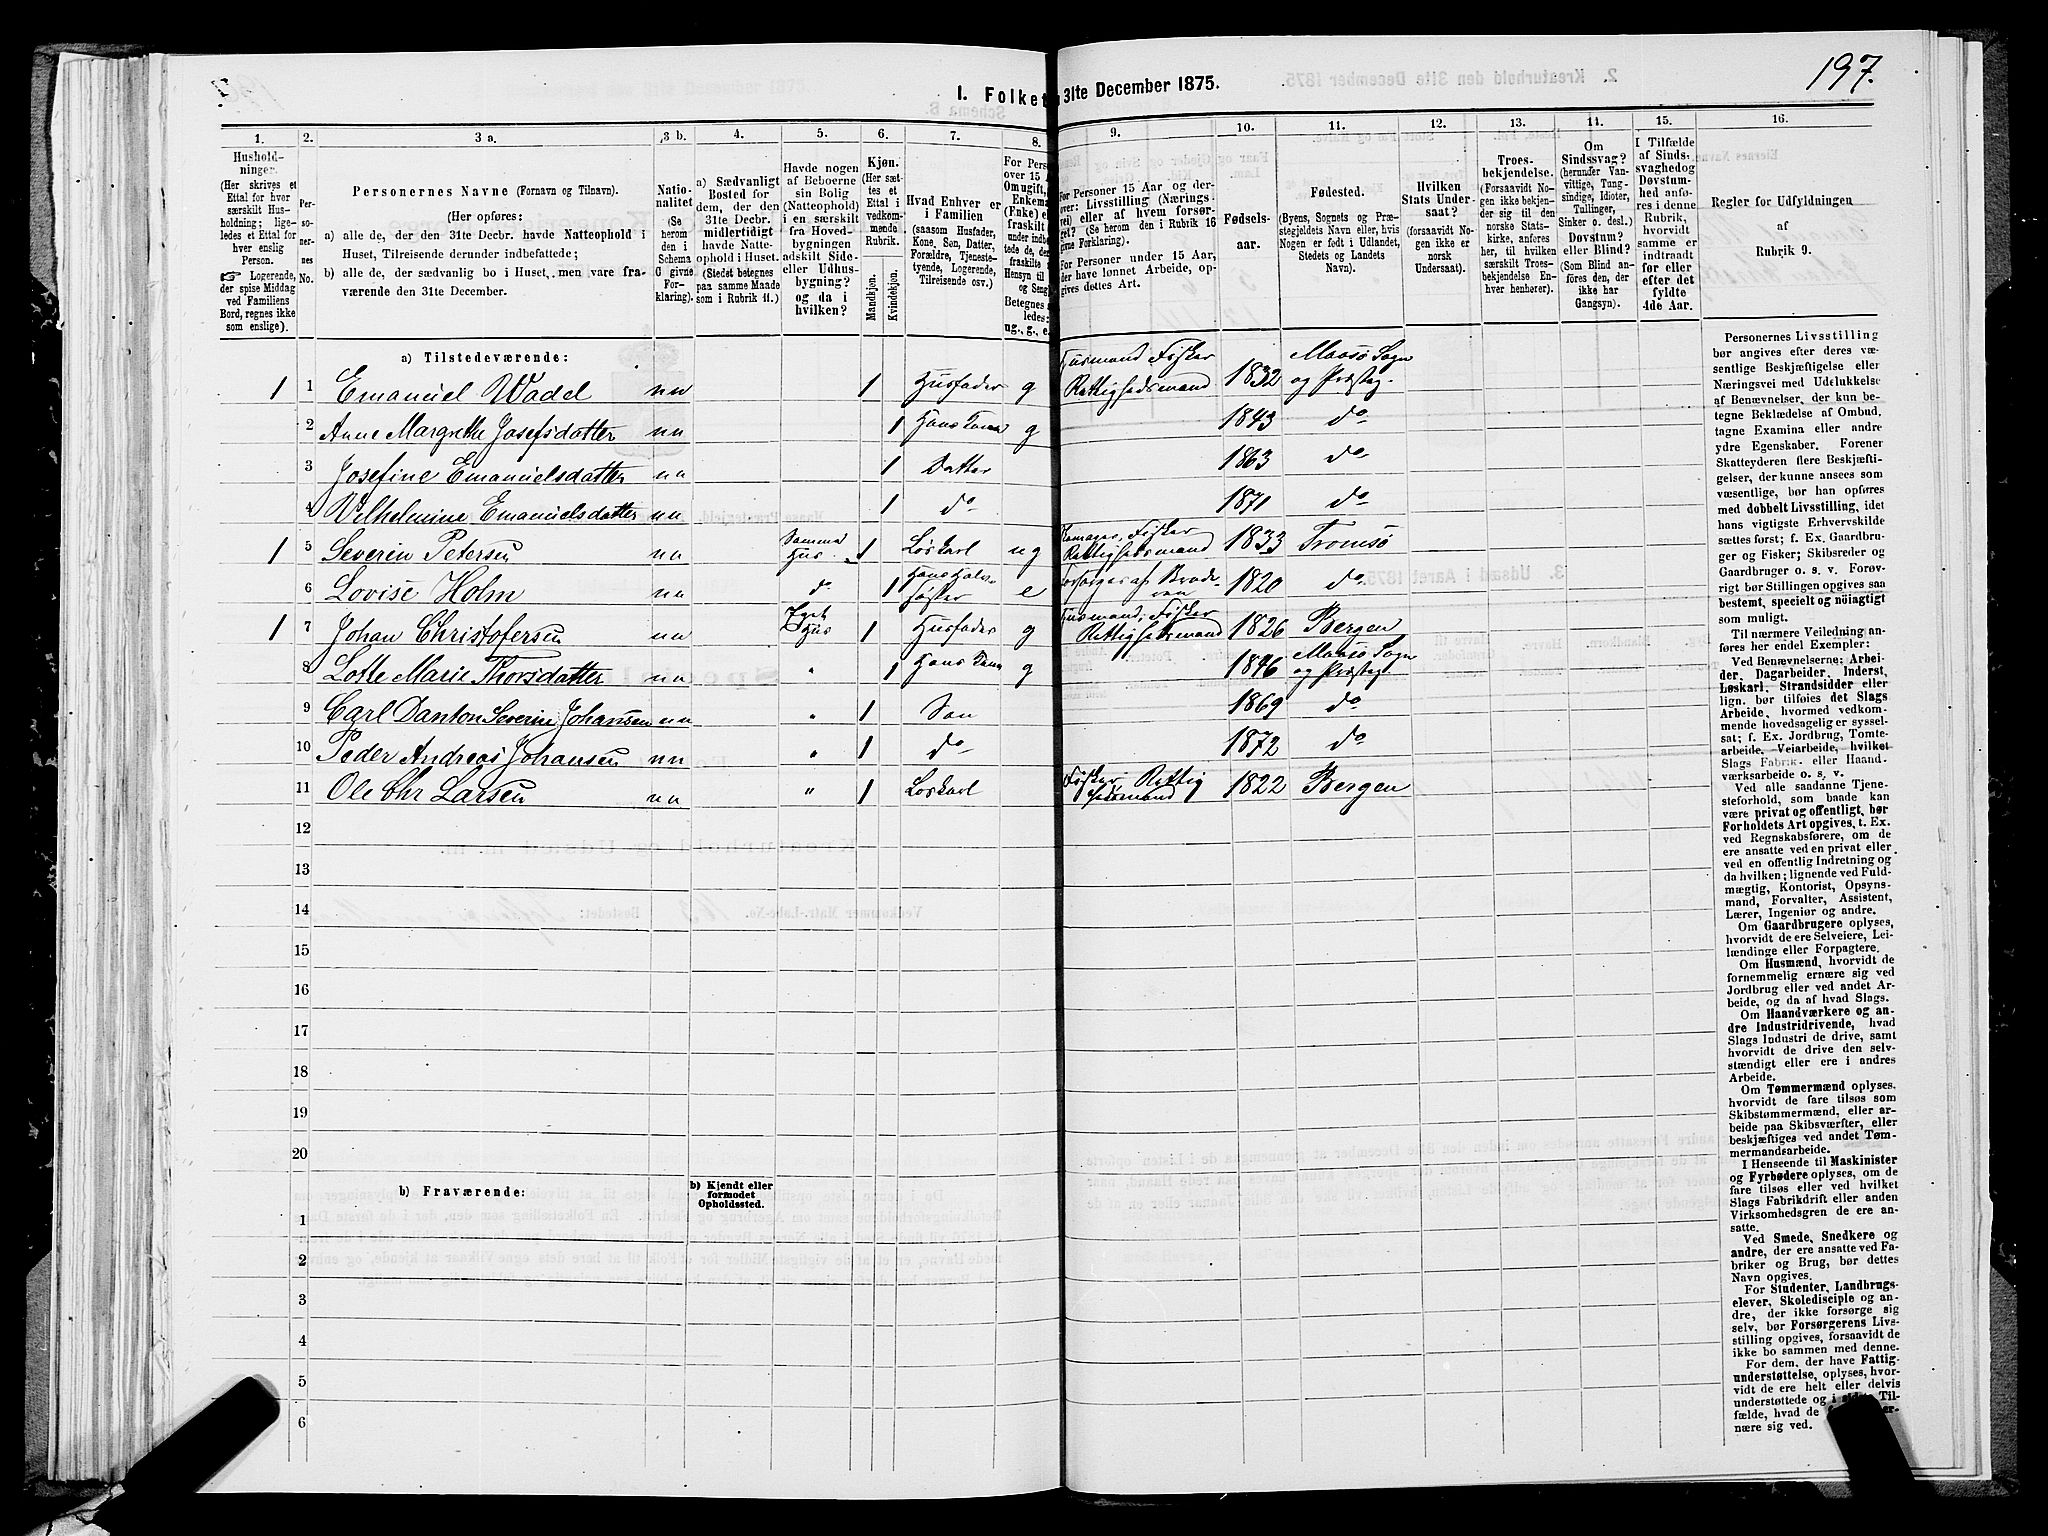 197.
I. Folket
31te December 1875.
1. 2. 3 a. 3 b. 4. 5. 6. 7. 8. 9. 10. 11. 12. 13. 14. 15. 16.
Husholdninger.
(Her skrives et
Ettal for hver
særskilt Husholdning;
ligeledes et Ettal for
hver enslig
Person.
☞ Logerende,
der spise Middag
ved Familiens
Bord, regnes ikke
som enslige).
Personernes
No.
Personernes Navne (Fornavn og Tilnavn).
(Her opføres:
a) alle de, der den 31te Decbr. havde Natteophold i
Huset, Tilreisende derunder indbefattede;
b) alle de, der sædvanlig bo i Huset, men vare fraværende
den 31te December.
Nationalitet
(Se
herom
den i
Schema
C givne
Forklaring).
a) Sædvanligt
Bosted for
dem, der den
31te Decbr.
midlertidigt
havde Natteophold
i Huset.
(Stedet betegnes
paa samme Maade
som i Rubrik 11.)
Havde nogen
af Beboerne
sin Bolig
(Natteophold)
i en særskilt
fra Hovedbygningen
adskilt Side-
eller Udhusbygning?
og da i
hvilken?
Kjøn.
(Her sættes
et
Ettal i
vedkommende
Rubrik.
Mandkjøn.
Kvindekjøn.
Hvad Enhver er
i Familien
(saasom Husfader,
Kone, Søn, Datter,
Forældre, Tjenestetyende,
Logerende,
Tilreisende osv.)
For Personer 15 Aar og derover:
Livsstilling (Næringsvei)
eller af hvem forsørget?
(Se herom den i Rubrik 16
givne Forklaring).
For Personer under 15 Aar,
der have lønnet Arbeide, opgives
dettes Art.
Fødselsaar.
Fødested.
(Byens, Sognets og Præstegjeldets
Navn eller, hvis
Nogen er født i Udlandet,
Stedets og Landets
Navn).
Hvilken
Stats Undersaat?
(forsaavidt Nogen
ikke er
norsk
Undersaat).
Troesbekjendelse.
(Forsaavidt Nogen
ikke bekjender
sig til den
norske Statskirke,
anføres
her, til hvilket
særskilt Troesbekjendelse
Enhver
henhører).
Om
Sindssvag?
(herunder Vanvittige,
Tungsindige,
Idioter,
Tullinger,
Sinker o. desl.)
Døvstum?
eller Blind?
(Som Blind anføres
den, der
ikke har
Gangsyn).
I Tilfælde
af Sindssvaghed
og
Døvstumhed
anføres
i denne
Rubrik,
hvorvidt
samme er
indtraadt
før eller
efter det
fyldte
4de Aar.
Regler for Udfyldningen
af
Rubrik 9.
a) Tilstedeværende:
1 1 Emanuel Wadel nn 1 Husfader g Husmand Fisker Rettighedsmand 1832 Maasø Sogn og Præsteg.
2 Anne Margrethe Josefsdatter nn 1 Hans Kone g 1843 do
3 Josefine Emanuelsdatter nn 1 Datter 1863 do
4 Vilhelmine Emanuelsdatter nn 1 do 1871 do
1 5 Severin Petersen nn Samme Hus 1 Løskarl ug Fisker Rettighedsmand 1833 Tromsø
6 Lovise Holm nn do 1 Hans Halvsøster e Forsørges af Broderen 1820 do
1 7 Johan Christofersen nn Eget Hus 1 Husfader g Husmand, Fisker Rettighedsmand 1826 Bergen
8 Lotte Marie Thorsdatter nn " 1 Hans Kone g 1846 Maasø Sogn og Præsteg.
9 Carl Danton Severin Johansen nn " 1 Søn 1869 do
10 Peder Andreas Johansen nn " 1 do 1872 do
11 Ole Chr Larsen nn " 1 Løskarl Fisker, Rettighedsmand 1822 Bergen
12
13
14
15
16
17
18
19
20
b) Fraværende:
b) Kjendt eller
formodet
Opholdssted.
1
2
3
4
5
6
Personernes Livsstilling
bør angives efter deres væsentlige
Beskjæftigelse eller
Næringsvei med Udelukkelse
af Benævnelser, der kun betegne
Beklædelse af Ombud,
tagne Examina eller andre
ydre Egenskaber. Forener
Skatteyderen flere Beskjæftigelser,
der kunne ansees som
væsentlige, bør han opføres
med dobbelt Livsstilling, idet
hans vigtigste Erhvervskilde
sættes først; f. Ex. Gaardbruger
og Fisker; Skibsreder og
Gaardbruger o. s. v. Forøvrigt
bør Stillingen opgives saa
bestemt, specielt og nøiagtigt
som muligt.
Til nærmere Veiledning anføres
her endel Exempler:
Ved Benævnelserne: Arbeider,
Dagarbeider, Inderst,
Løskarl, Strandsidder eller
lign. bør tilføies det Slags
Arbeide, hvormed vedkommende
hovedsagelig er sysselsat;
f. Ex. Jordbrug, Tomtearbeide,
Veiarbeide, hvilket
Slags Fabrik- eller Haandværksarbeide
o. s. v.
Ved alle saadanne Tjenesteforhold,
som baade kan
være privat og offentligt, bør
Forholdets Art opgives, t. Ex.
ved Regnskabsførere, om de
ere ansatte ved en privat eller
ved en offentlig Indretning og
da hvilken; lignende ved Fuldmægtig,
Kontorist, Opsynsmand,
Forvalter, Assistent,
Lærer, Ingeniør og andre.
Om Gaardbrugere oplyses,
hvorvidt de ere Selveiere, Leilændinge
eller Forpagtere.
Om Husmænd, hvorvidt de
fornemmelig ernære sig ved
Jordbrug eller ved andet Arbeide,
og da af hvad Slags.
Om Haandværkere og andre
Industridrivende, hvad
Slags Industri de drive, samt
hvorvidt de drive den selvstændigt
eller ere i andres
Arbeide.
Om Tømmermænd oplyses,
hvorvidt de fare tilsøs som
Skibstømmermænd, eller arbeide
paa Skibsværfter, eller
beskjæftiges ved andet Tømmermandsarbeide.
I Henseende til Maskinister
og Fyrbødere oplyses, om de
fare tilsøs eller ved hvilket
Slags Fabrikdrift eller anden
Virksomhedsgren de ere ansatte.
Ved Smede, Snedkere og
andre, der ere ansatte ved Fabriker
og Brug, bør dettes
Navn opgives.
For Studenter, Landbrugselever,
Skoledisciple og andre,
der ikke forsørge sig
selv, bør Forsørgerens Livsstilling
opgives, forsaavidt de
ikke bo sammen med denne.
For dem, der have Fattigunderstøttelse,
oplyses, hvorvidt
de ere helt eller delvis
understøttede og i sidste Tilfælde,
hvad de
nære sig ved.